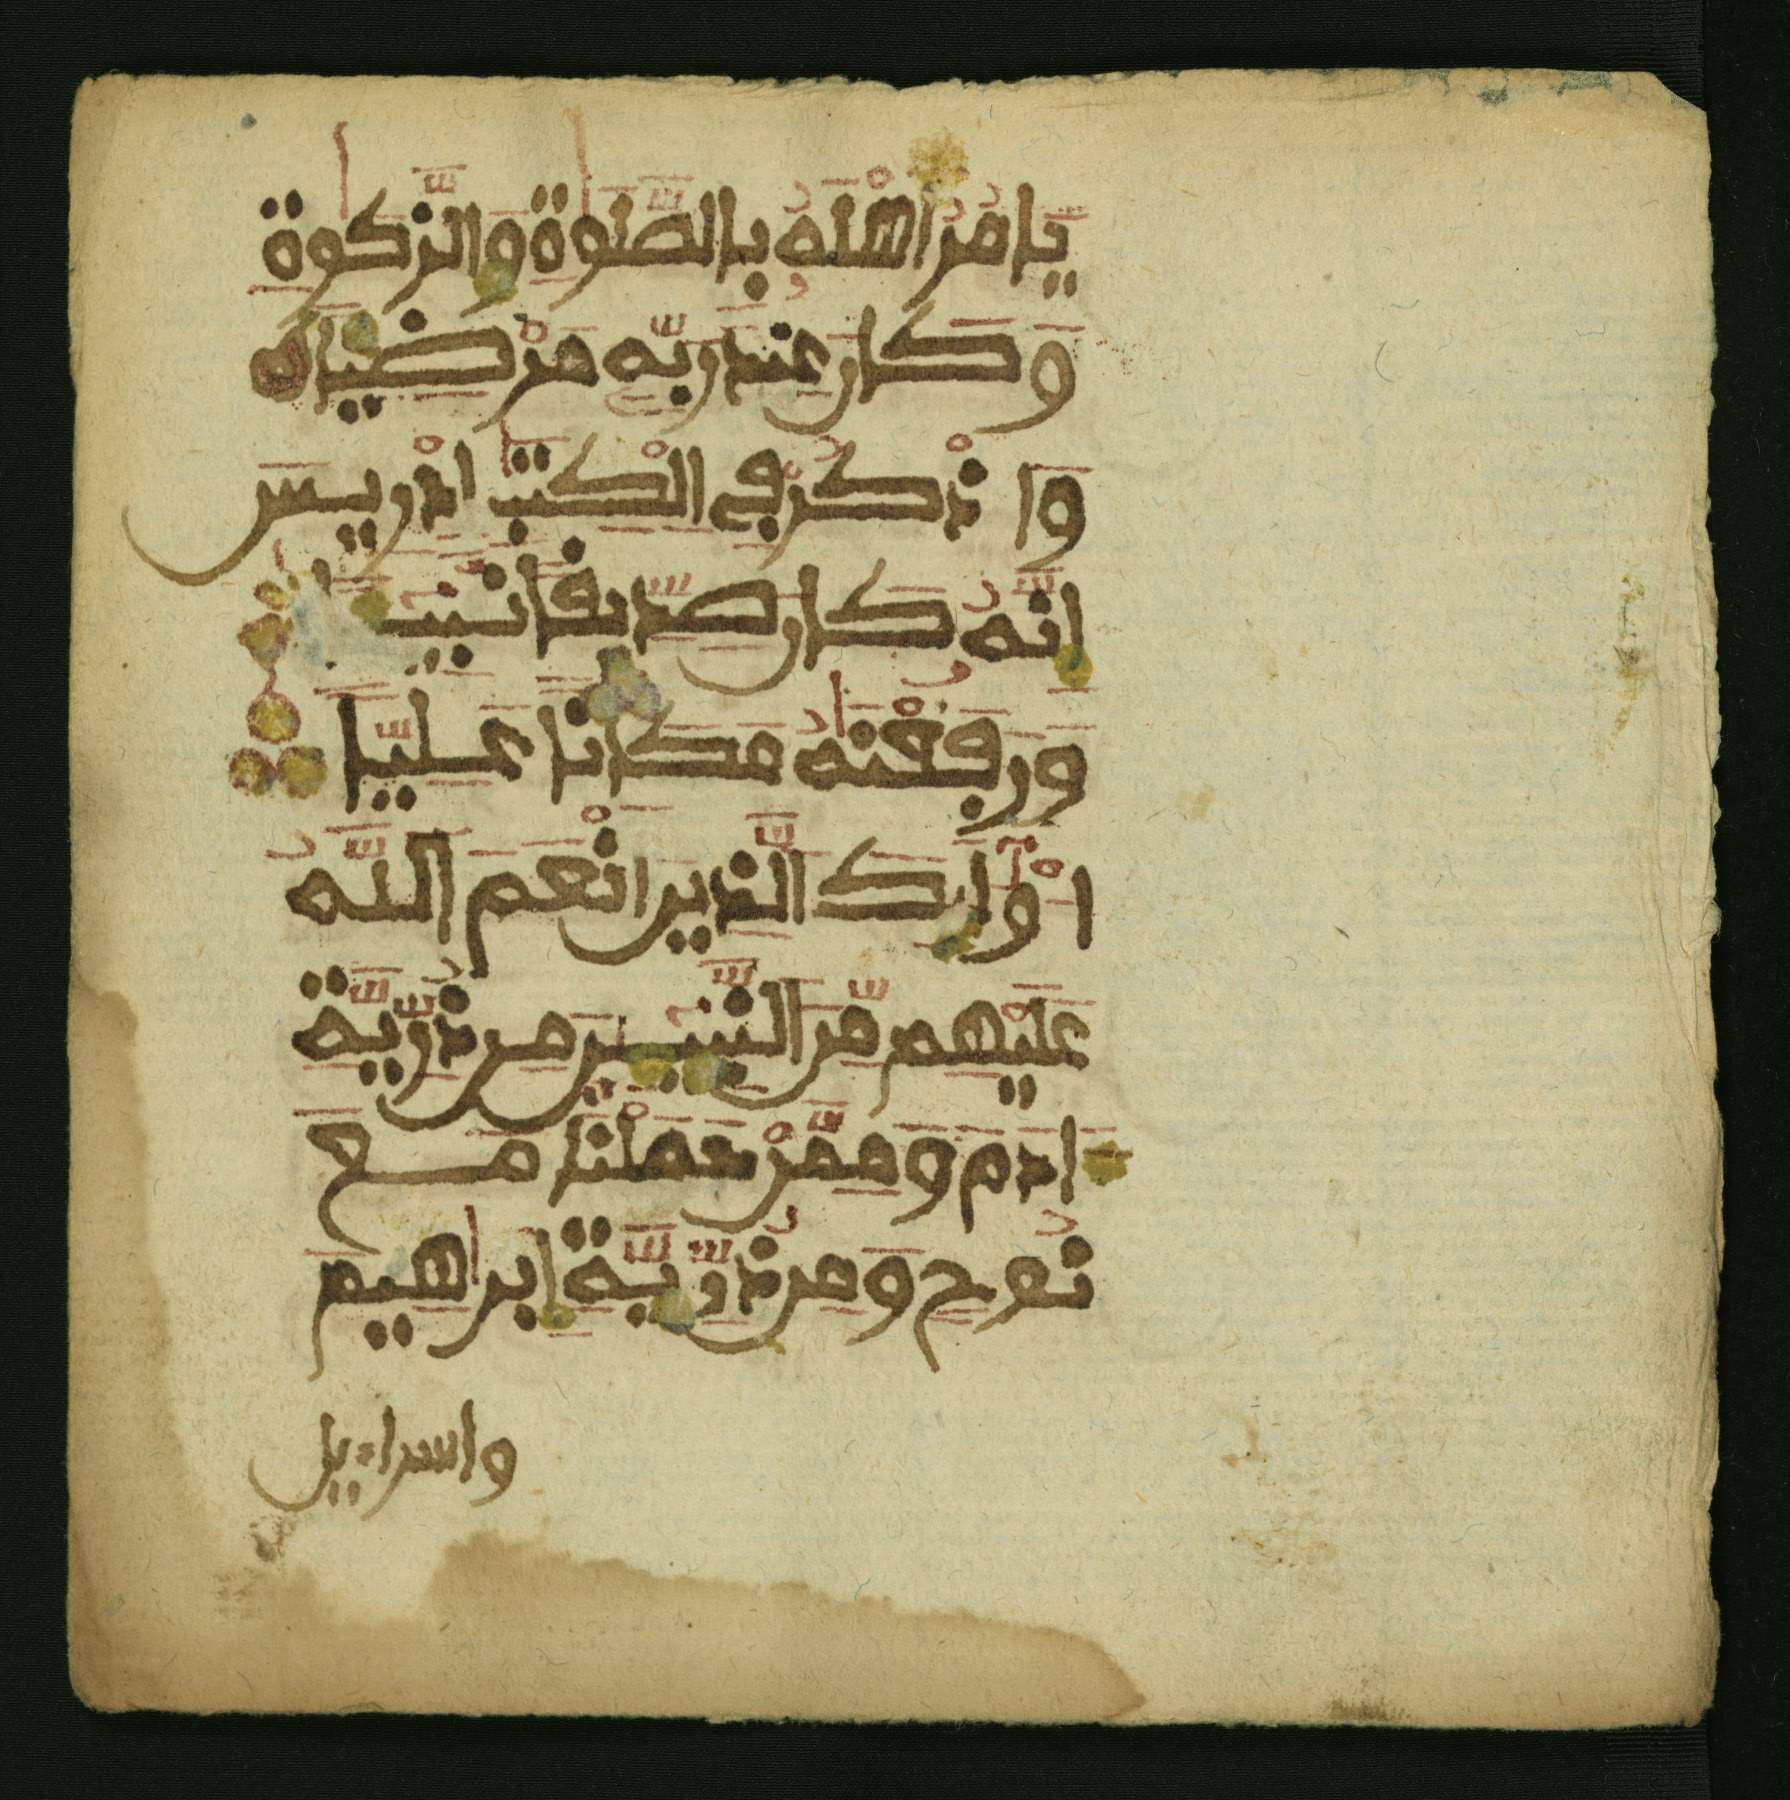 يامر أهله بالصلوة والزكوة
وكان عند ربه مرضيا
واذكر في الكتب إدريس
إنه كان صديقا نبيا
ورفعنه مكانا عليا
أولئك الذين أنعم الله
عليهم من النبين من ذرية
ادم وممن حملنا مع
نوح ومن ذرية إبرهيم
واسراءيل